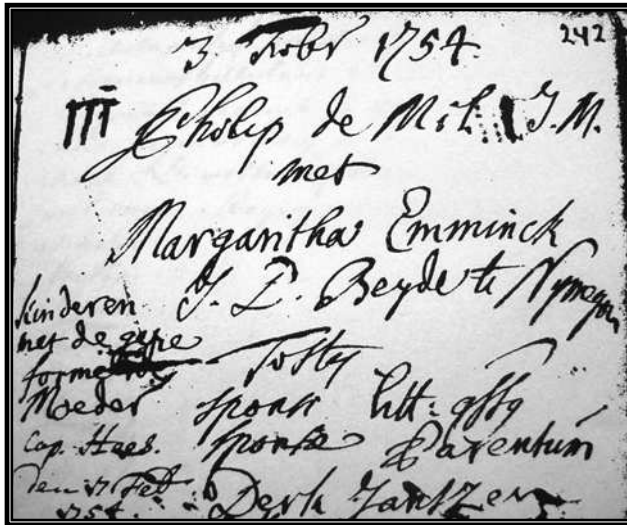 3 Febr 1754.
242
III
Philip de Mil J.M.
met
Margaritha Emminck
J. D. Beyde te Nymegen
kinderen
met de gere
formeerde
Moeder
Cap. Haes.
den 17 Feb
1754.
Testes
sponsi litt:
sponsae Parentum
Derk Jantzen